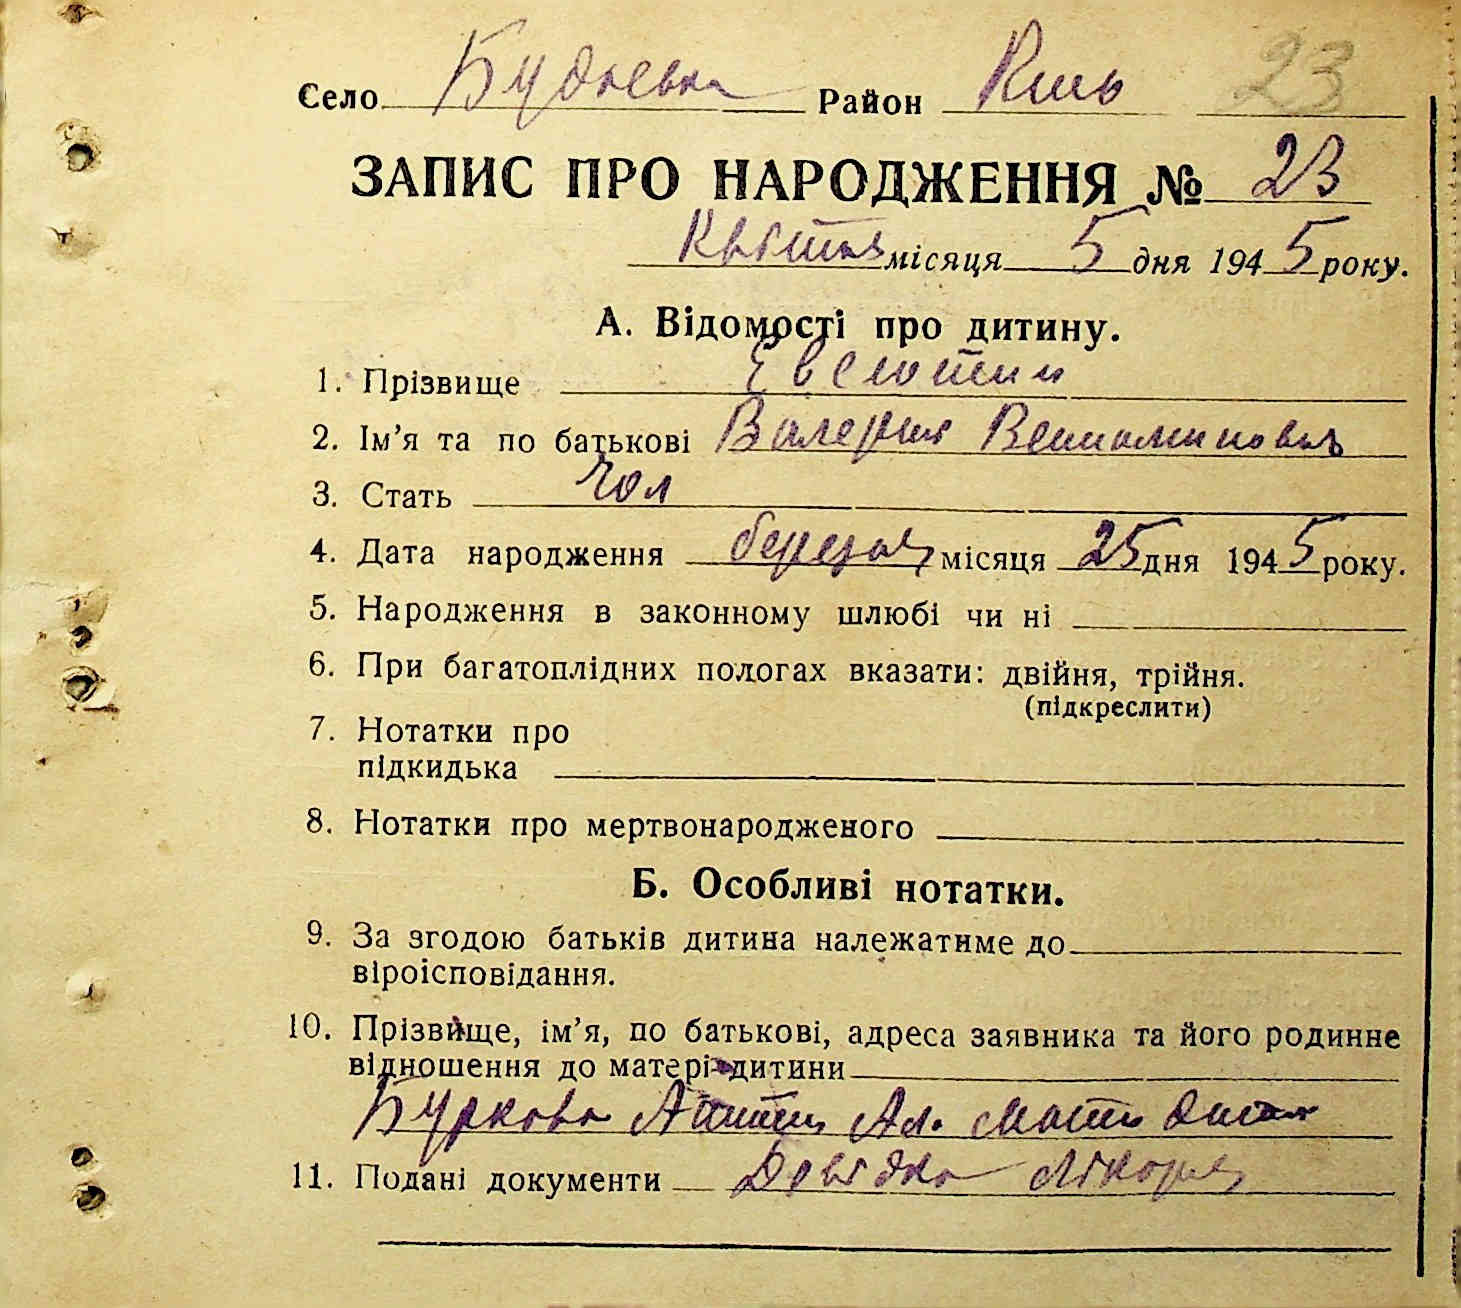 Село Будаевка Район Київ 23
ЗАПИС ПРО НАРОДЖЕННЯ № 23
Квітня місяця 5 дня 1945 року.
А. Відомості про дитину.
1. Прізвище
2. Ім'я та по батькові Валерия
3. Стать Чол
4. Дата народження березня місяця 25 дня 1945 року.
5. Народження в законному шлюбі чи ні
6. При багатоплідних пологах вказати: двійня, трійня.
(підкреслити)
7. Нотатки про
підкидька
8. Нотатки про мертвонародженого
Б. Особливі нотатки.
9. За згодою батьків дитина належатиме до
віроісповідання.
10. Прізвище, ім'я, по батькові, адреса заявника та його родинне
відношення до матері дитини
Буркова Ал. мати
11. Подані документи Довідка лікаря